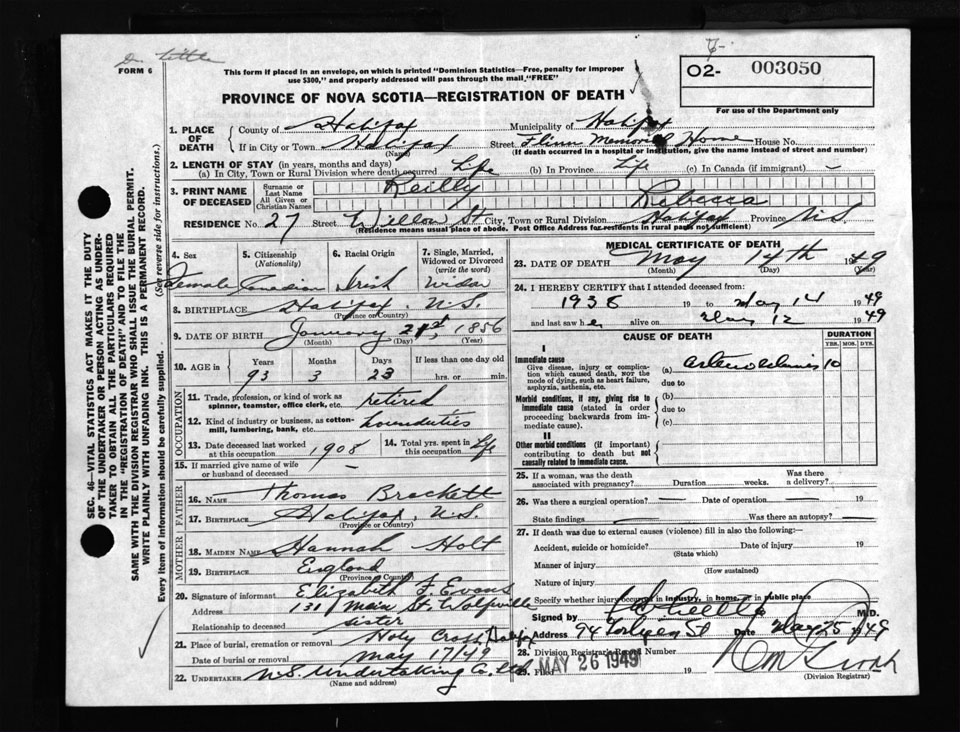 FORM 6
This form if placed in an envelope, on which is printed "Dominion Statistics—Free, penalty for improper
use $300," and properly addressed will pass through the mail, "FREE"
PROVINCE OF NOVA SCOTIA—REGISTRATION OF DEATH
O2- 003050
For use of the Department only
1. PLACE OF DEATH
County of Halifax Municipality of Halifax
If in City or Town Halifax Street House No.
(Name) (If death occurred in a hospital or institution, give the name instead of street and number)
2. LENGTH OF STAY (in years, months and days)
(a) In City, Town or Rural Division where death occurred Life (b) In Province Life (c) In Canada (if immigrant) -
3. PRINT NAME OF DECEASED
Surname or Last Name Reilly
All Given or Christian Names Rebecca
RESIDENCE No. 27 Street Willow St City, Town or Rural Division Halifax Province N.S.
(Residence means usual place of abode. Post Office Address for residents in rural parts not sufficient)
4. Sex Female
5. Citizenship (Nationality) Canadian
6. Racial Origin Irish
7. Single, Married, Widowed or Divorced (write the word) Widow
8. BIRTHPLACE Halifax, N.S.
(Province or Country)
9. DATE OF BIRTH January 21st, 1856
(Month) (Day) (Year)
10. AGE in Years 93 Months 3 Days 23 If less than one day old hrs. or min.
OCCUPATION
11. Trade, profession, or kind of work as spinner, teamster, office clerk, etc. retired
12. Kind of industry or business, as cotton-mill, lumbering, bank, etc.
13. Date deceased last worked at this occupation 1908
14. Total yrs. spent in this occupation Life
15. If married give name of wife or husband of deceased -
FATHER
16. NAME Thomas Brackett
17. BIRTHPLACE Halifax, N.S.
(Province or Country)
MOTHER
18. MAIDEN NAME Hannah Holt
19. BIRTHPLACE England
(Province or Country)
20. Signature of informant Elizabeth F. Evans
Address 131 Main St. Wolfville
Relationship to deceased sister
21. Place of burial, cremation or removal Holy Cross Halifax
Date of burial or removal May 17/49
22. UNDERTAKER N.S. Undertaking Co. Ltd
(Name and address)
MEDICAL CERTIFICATE OF DEATH
23. DATE OF DEATH May 14th 1949
(Month) (Day) (Year)
24. I HEREBY CERTIFY that I attended deceased from:
1938 19 to May 14 1949
and last saw her alive on May 12 1949
CAUSE OF DEATH
DURATION
YRS. MOS. DYS.
I
Immediate cause
Give disease, injury or complication which caused death, not the mode of dying, such as heart failure, asphyxia, asthenia, etc.
(a) 10
due to
Morbid conditions, if any, giving rise to immediate cause (stated in order proceeding backwards from immediate cause).
(b)
due to
(c)
II
Other morbid conditions (if important) contributing to death but not causally related to immediate cause.
25. If a woman, was the death associated with pregnancy? Duration weeks. Was there a delivery?
26. Was there a surgical operation? — Date of operation — 19
State findings Was there an autopsy? —
27. If death was due to external causes (violence) fill in also the following:
Accident, suicide or homicide? Date of injury 19
(State which)
Manner of injury
(How sustained)
Nature of injury
Specify whether injury occurred in industry, in home, or in public place
Signed by M.D.
Address 94 St Date May 25 1949
28. Division Registrar's Record Number
29. Filed MAY 26 1949
(Division Registrar)
SEC. 46—VITAL STATISTICS ACT MAKES IT THE DUTY
OF THE UNDERTAKER OR PERSON ACTING AS UNDER-
TAKER TO OBTAIN ALL THE PARTICULARS REQUIRED
IN THE "REGISTRATION OF DEATH" AND TO FILE THE
SAME WITH THE DIVISION REGISTRAR WHO SHALL ISSUE THE BURIAL PERMIT.
WRITE PLAINLY WITH UNFADING INK. THIS IS A PERMANENT RECORD.
Every item of information should be carefully supplied. (See reverse side for instructions.)